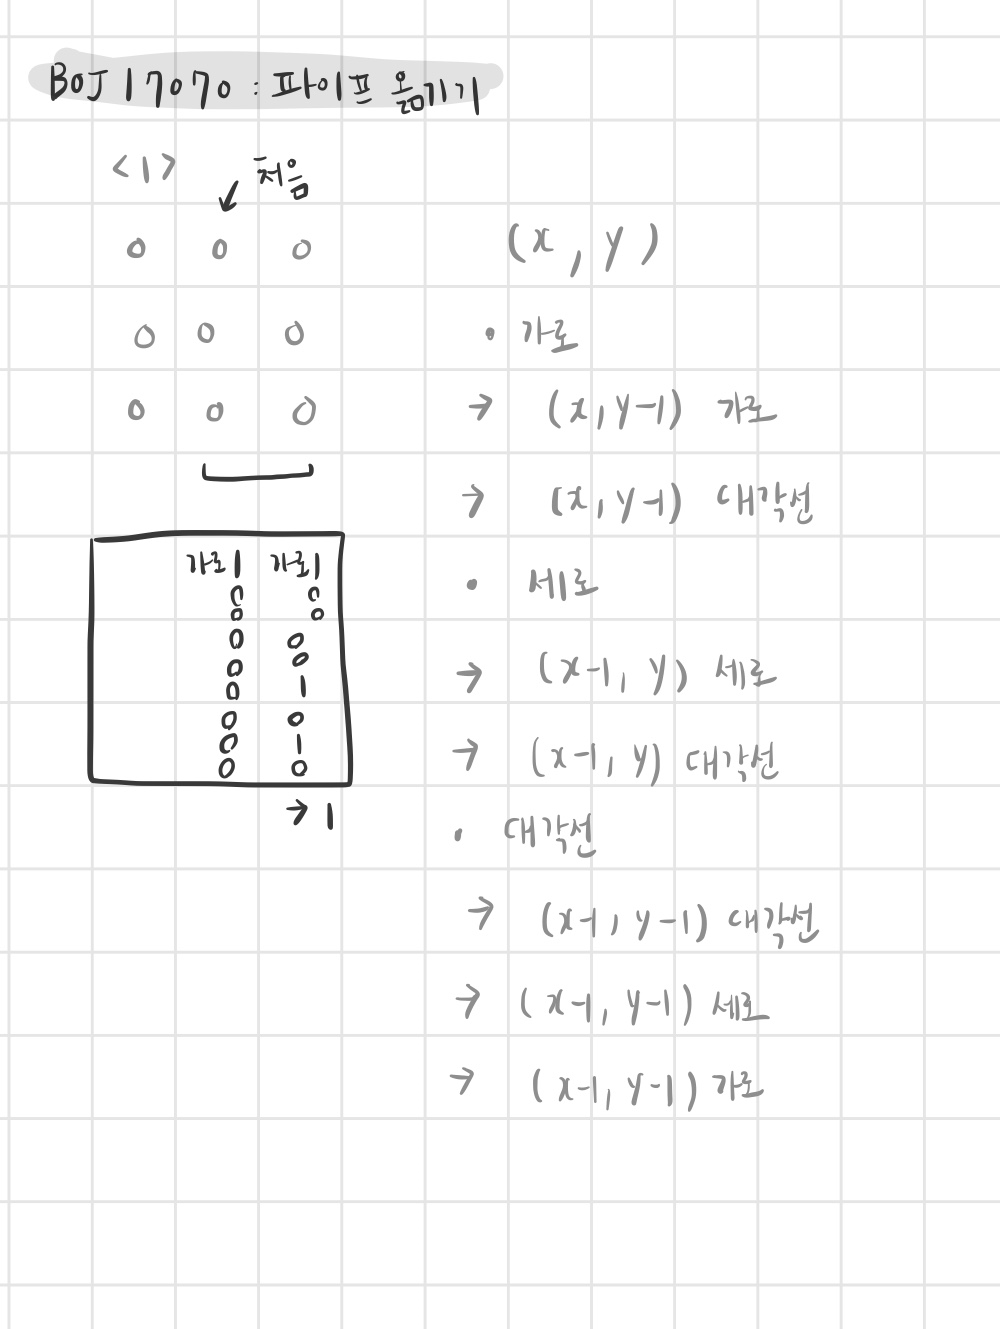 BOJ 17070 : 파이프 옮기기
<1>
처음
0 0 0
0 0 0
0 0 0
가로 1 가로 1
0 0
0 0
0 0
0 0
0 1
0 0
0 1
0 0
→ 1
(x, y)
• 가로
→ (x, y-1) 가로
→ (x, y-1) 대각선
• 세로
→ (x-1, y) 세로
→ (x-1, y) 대각선
• 대각선
→ (x-1, y-1) 대각선
→ (x-1, y-1) 세로
→ (x-1, y-1) 가로